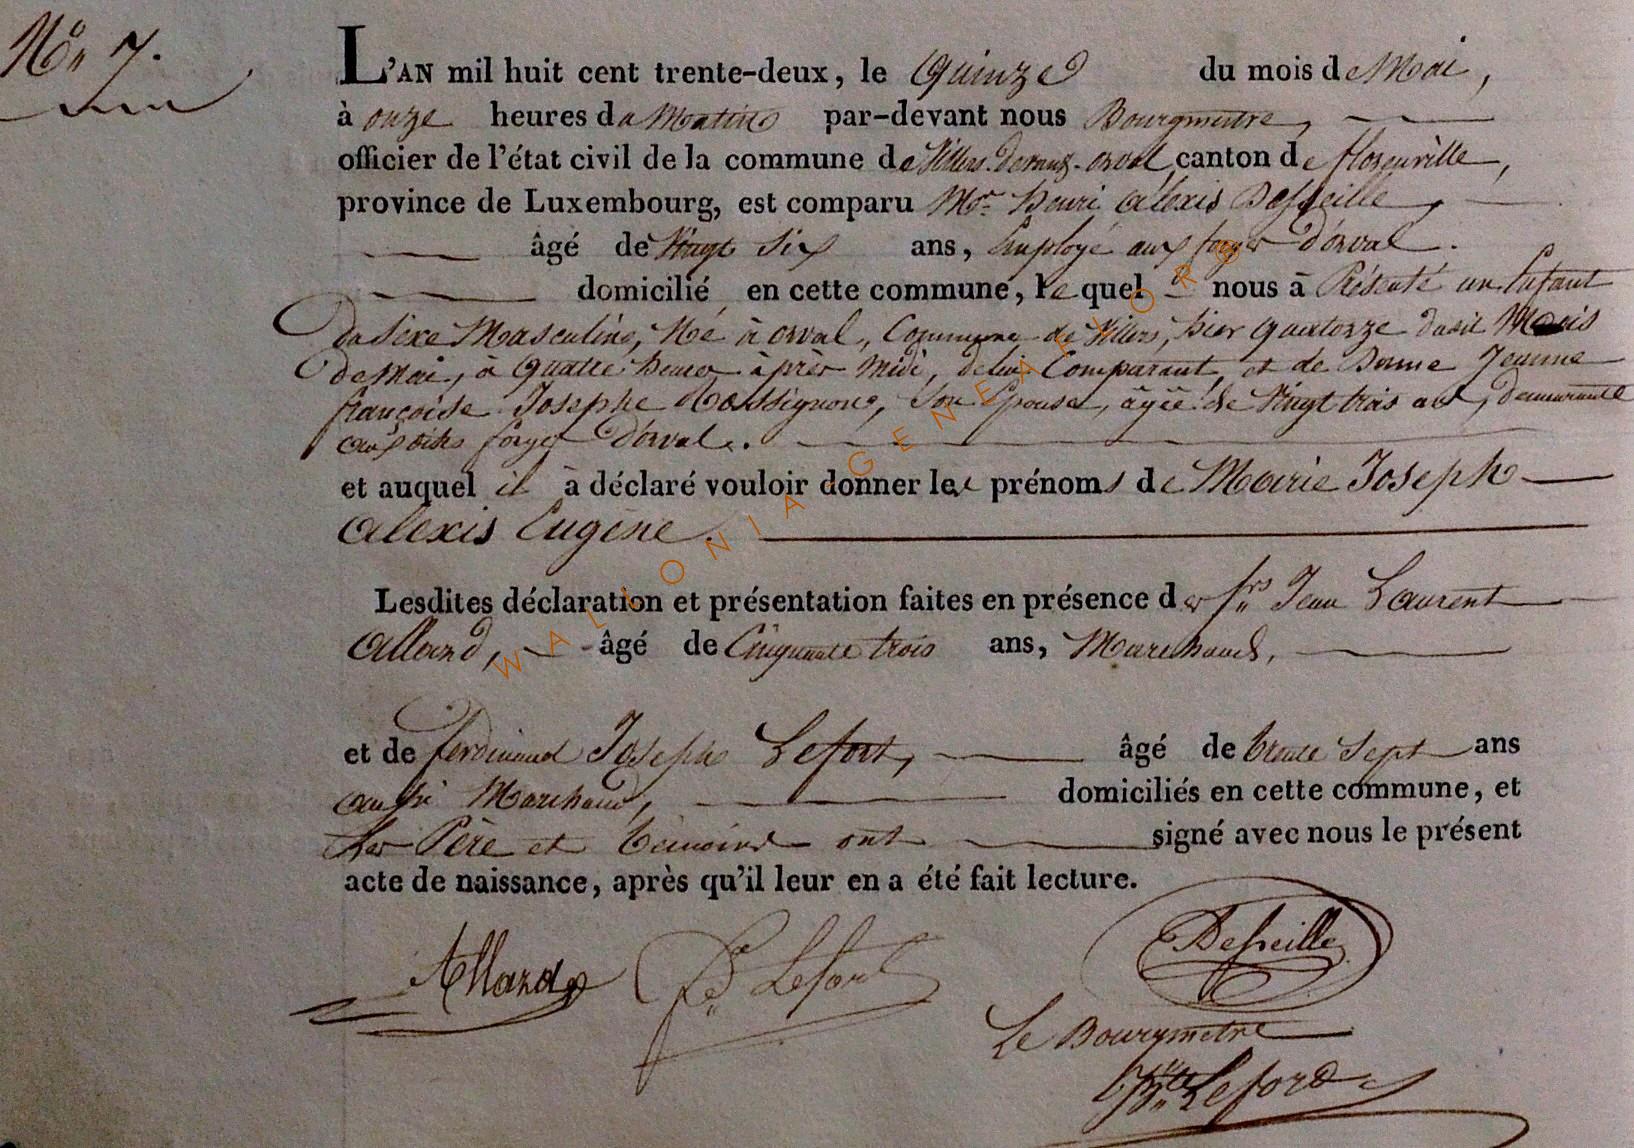 N° 7.
L'AN mil huit cent trente-deux, le Quinze du mois de Mai,
à onze heures du Matin par-devant nous Bourgmestre,
officier de l'état civil de la commune de Villers-devant-orval, canton de florenville,
province de Luxembourg, est comparu Mr. henri alexis
âgé de Vingt Six ans, Employé aux forges d'orval.
domicilié en cette commune, le quel nous à Présenté un Enfant
du Sexe Masculine, Né à orval, Commune de Villers, hier quatorze dudit Mois
de Mai, à Quatre heures après midi, de lui Comparant, et de Dame Jeanne
françoise Josephe Rossignon, Son Epouse, âgée de Vingt trois ans, demeurante
aux dites forges d'orval.
et auquel il à déclaré vouloir donner les prénoms de Marie Joseph
alexis Eugène.
Lesdites déclaration et présentation faites en présence des Jean Laurent
allard, âgé de Cinquante trois ans, Marchand,
et de ferdinand Joseph Lefort, âgé de trente Sept ans
aussi Marchand, domiciliés en cette commune, et
Les Père et témoins ont signé avec nous le présent
acte de naissance, après qu'il leur en a été fait lecture.
Allard Lefort
Le Bourgmetre
WALLONIA GENEALOR